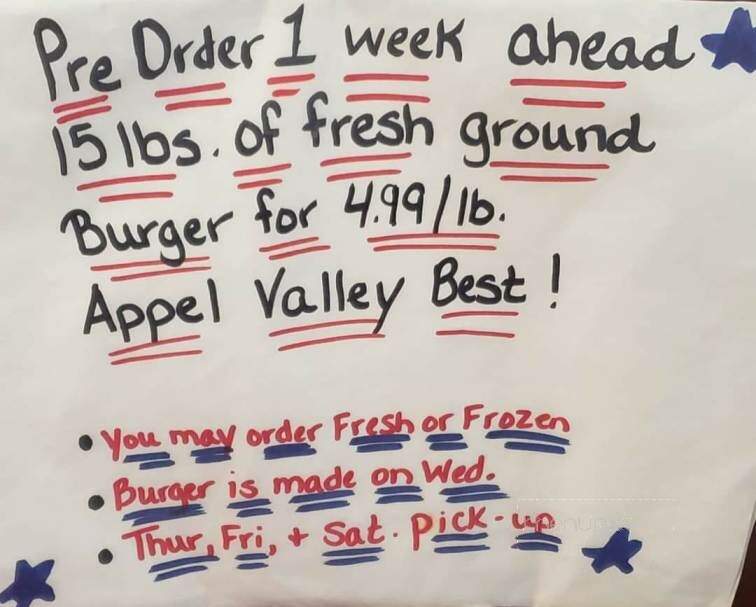 Pre Order 1 week ahead
15 lbs. of fresh ground
Burger for 4.99/lb.
Appel Valley Best!
• You may order Fresh or Frozen
• Burger is made on Wed.
• Thur, Fri, + Sat. pick-up